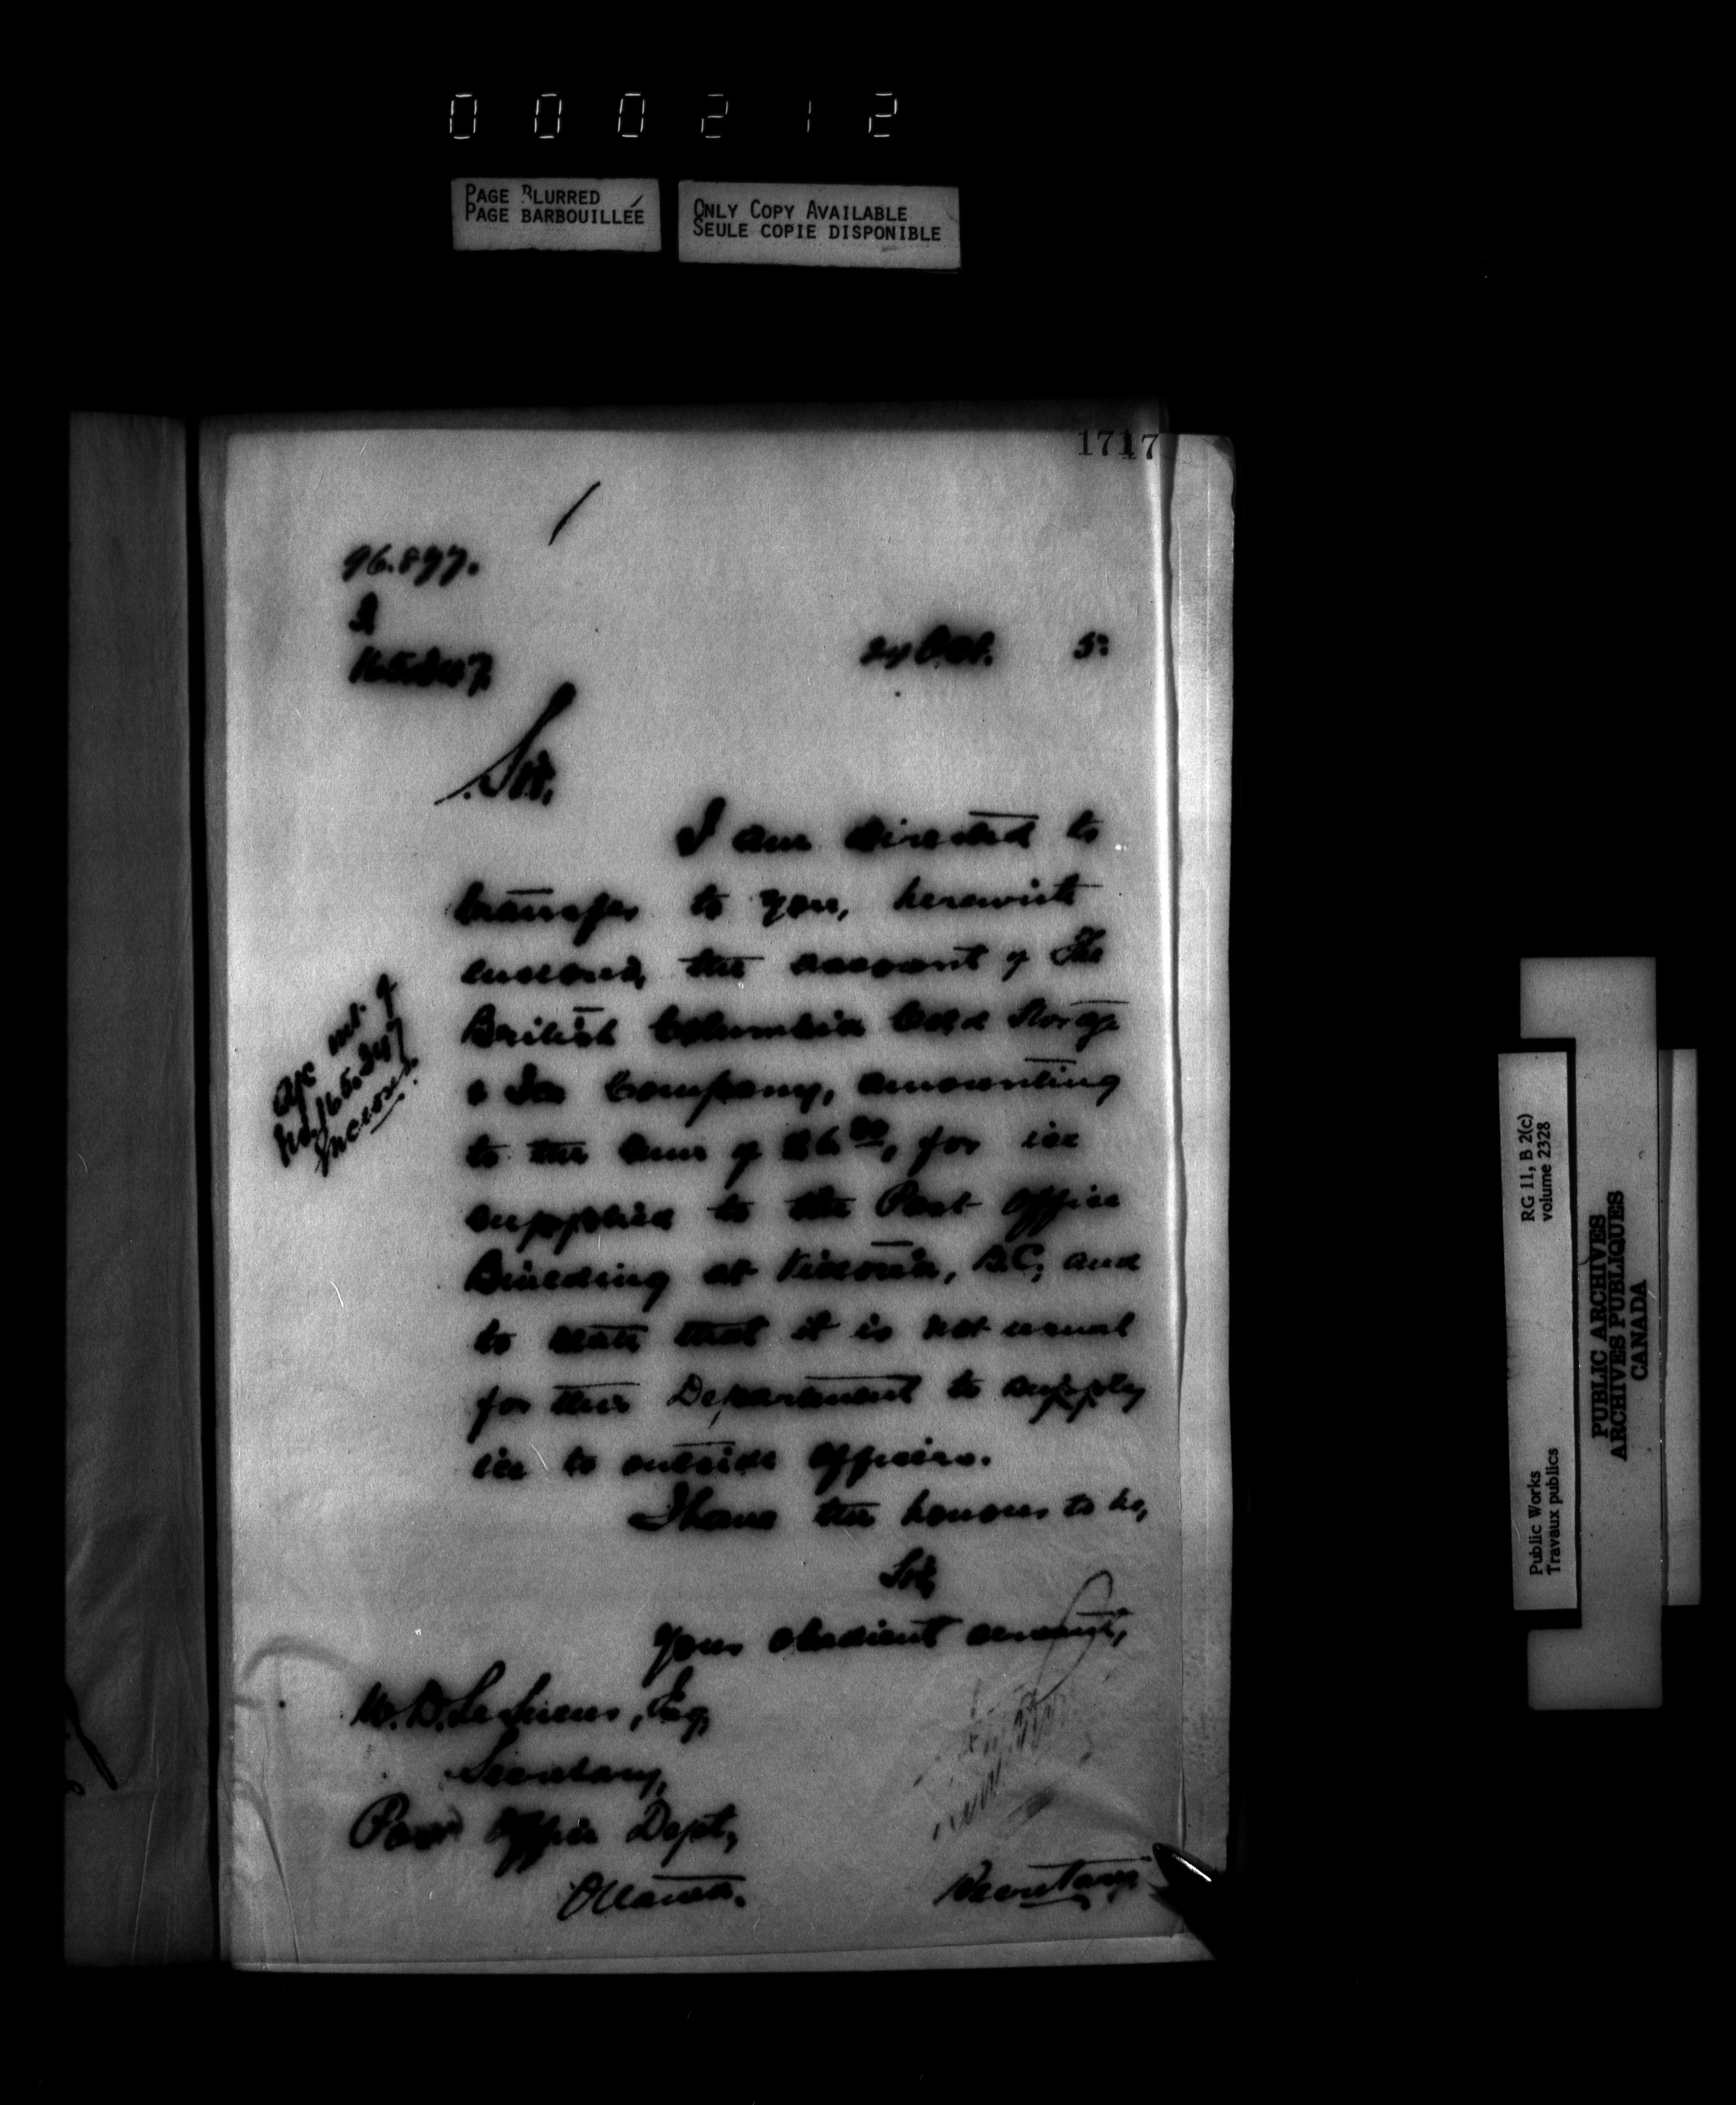 000212
PAGE BLURRED
PAGE BARBOUILLÉE
ONLY COPY AVAILABLE
SEULE COPIE DISPONIBLE
1717
24 Oct. 5
Sir,
I am directed to
transfer to you, herewith
enclosed, the account of The
British Columbia Cold Storage
& Ice Company, amounting
to the sum of for ice
supplied to the Post Office
Building at Victoria, B.C, and
to state that it is not usual
for this Department to supply
ice to outside offices.
I have the honour to be,
Sir,
Your obedient servant,
a/c out of
No. 165.247
Inclosed.
W. D. Esq,
Secretary,
Post Office Dept,
Ottawa.
Secretary
RG 11, B 2(c)
volume 2328
Public Works
Travaux publics
PUBLIC ARCHIVES
ARCHIVES PUBLIQUES
CANADA